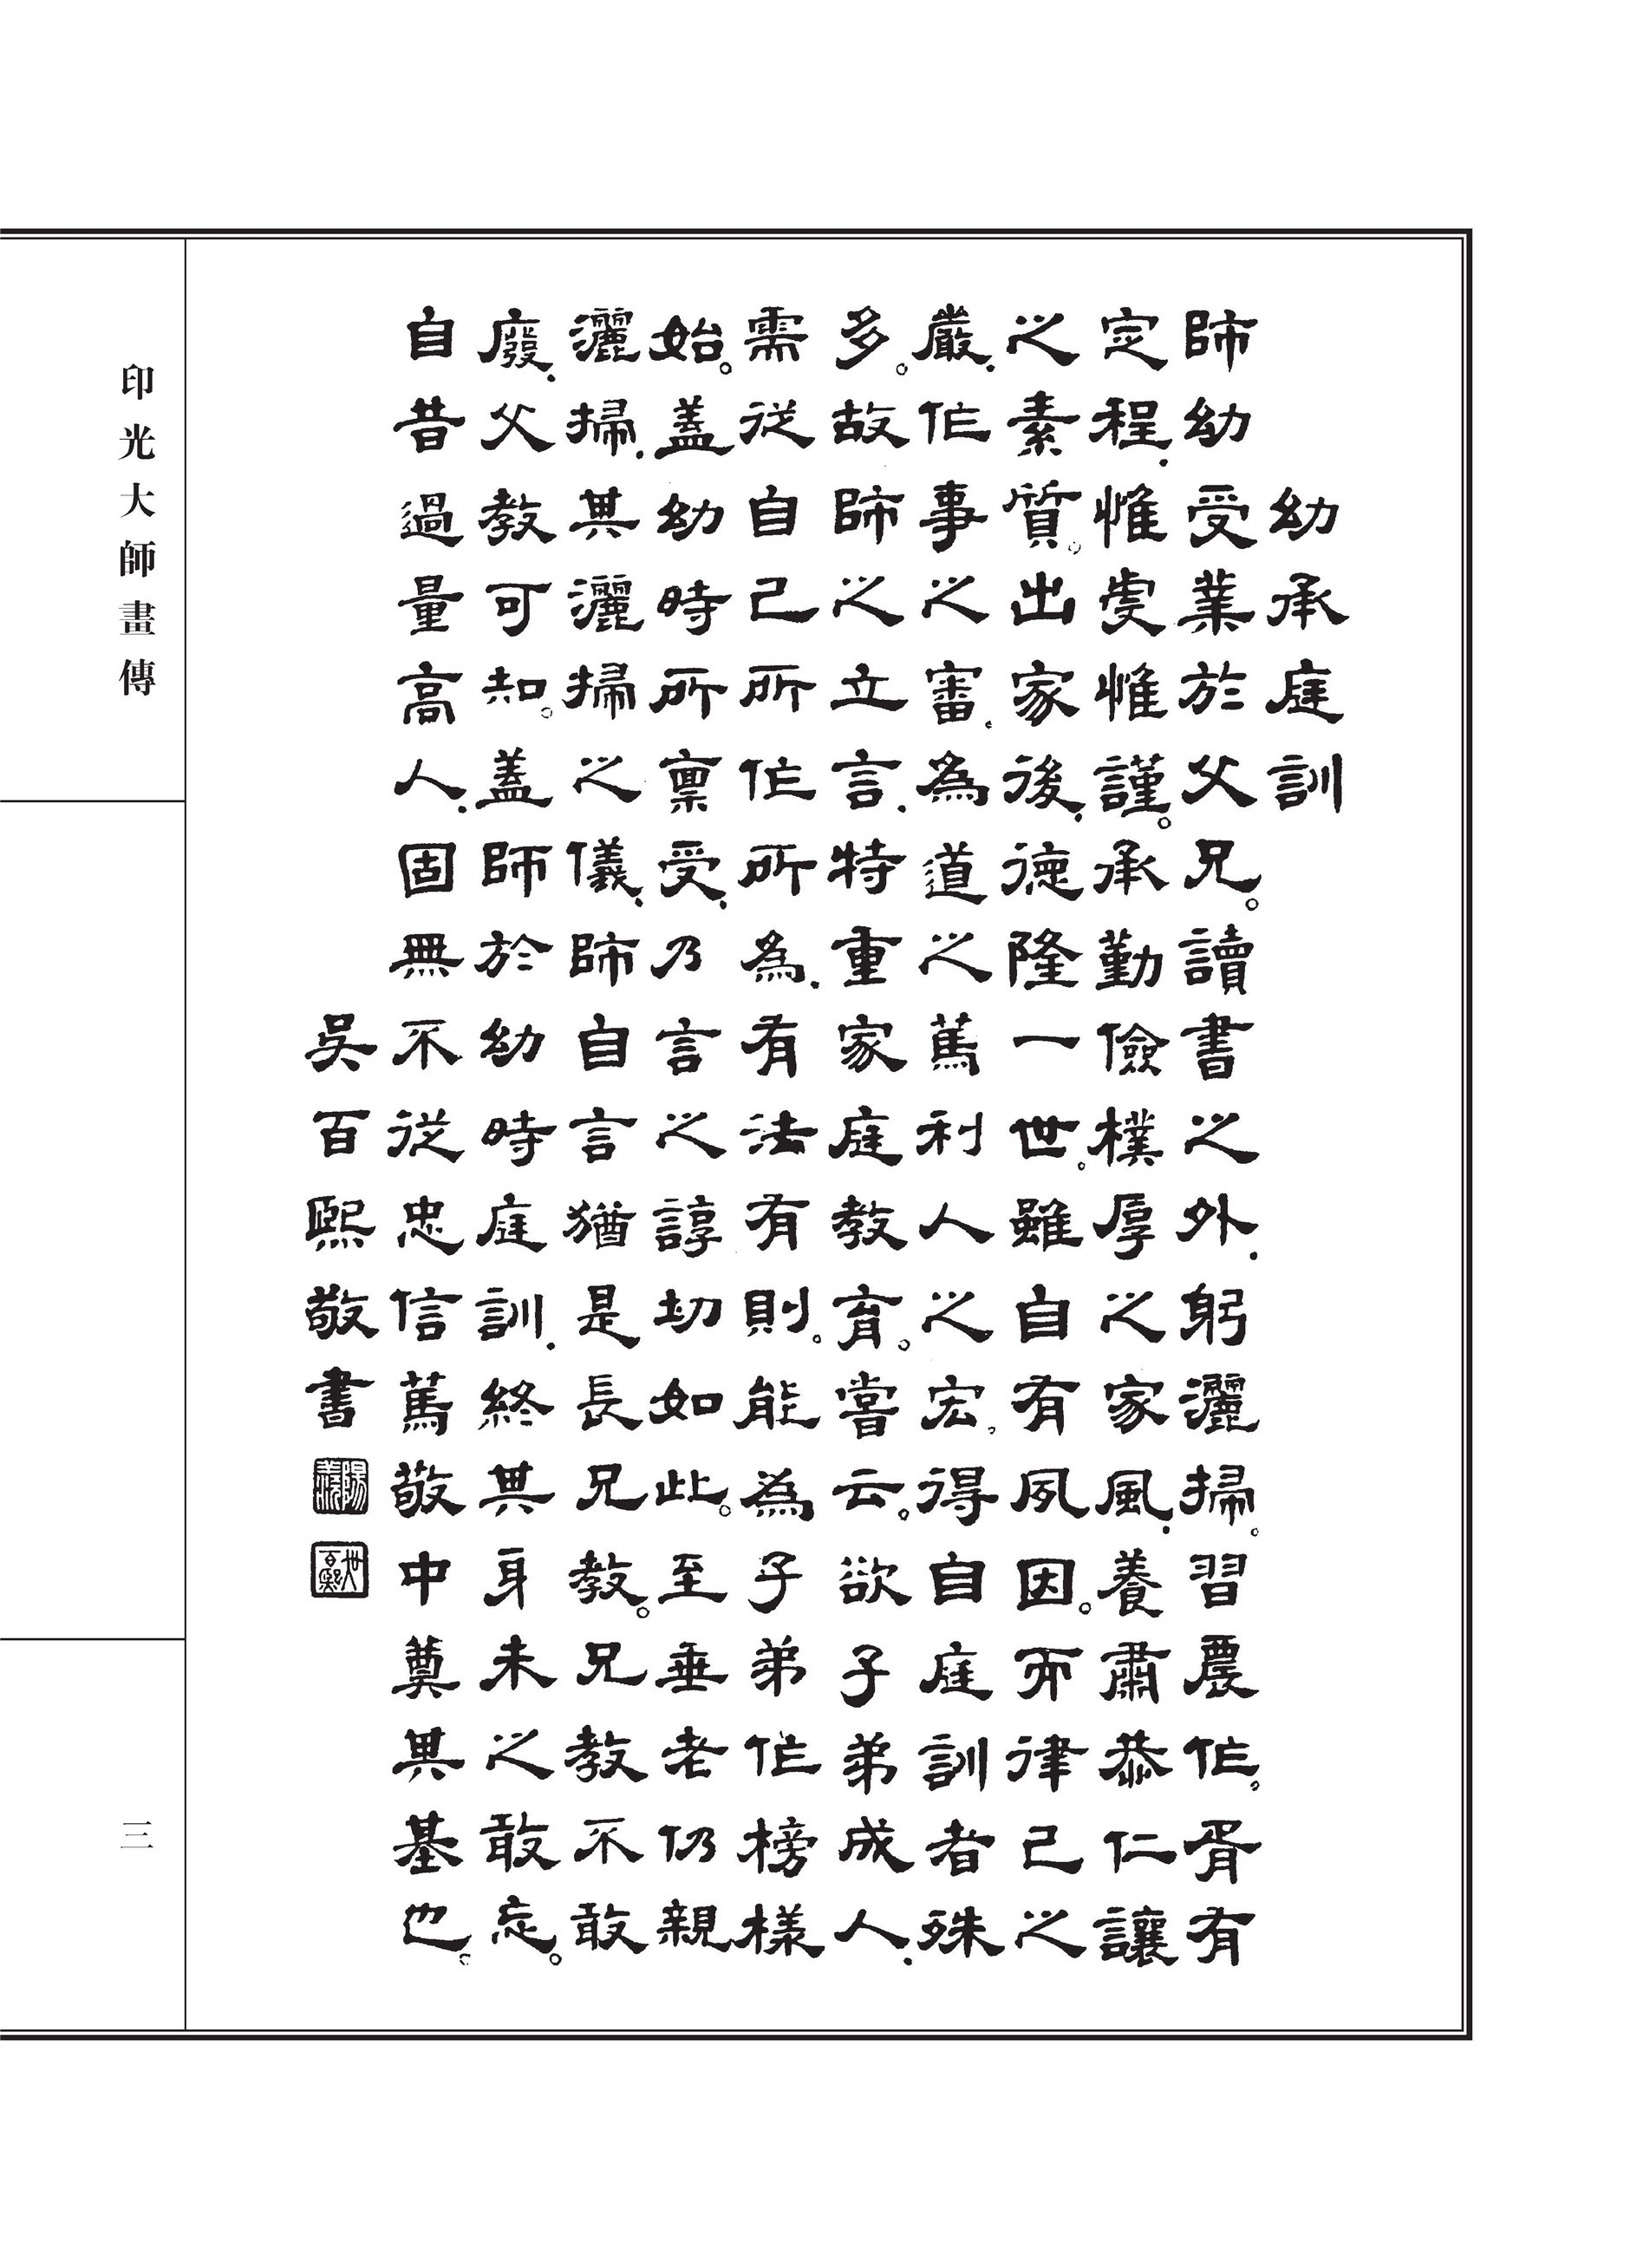 幼承庭訓
師幼受業於父兄。讀書之外.躬灑掃。習農作。胥有
定程.惟虔惟謹。承勤儉樸厚之家風.養肅恭仁讓
之素質。出家後.德隆一世。雖自有夙因。而律己之
嚴.作事之審.為道之篤利人之宏。得自庭訓者殊
多。故師之立言.特重家庭教育。嘗云。欲子弟成人.
需從自己所作所為.有法有則。能為子弟作榜樣
始。蓋幼時所稟受.乃言之諄切如此。至垂老仍親
灑掃.其灑掃之儀.師自言猶是長兄教。兄教不敢
廢.父教可知。蓋師於幼時庭訓.終其身未之敢忘。
自昔過量高人.固無不從忠信篤敬中奠其基也。
吳百熙敬書
印光大師畫傳
三